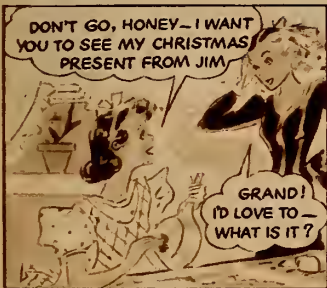 DON'T GO, HONEY – I WANT
YOU TO SEE MY CHRISTMAS
PRESENT FROM JIM
GRAND!
I'D LOVE TO –
WHAT IS IT?